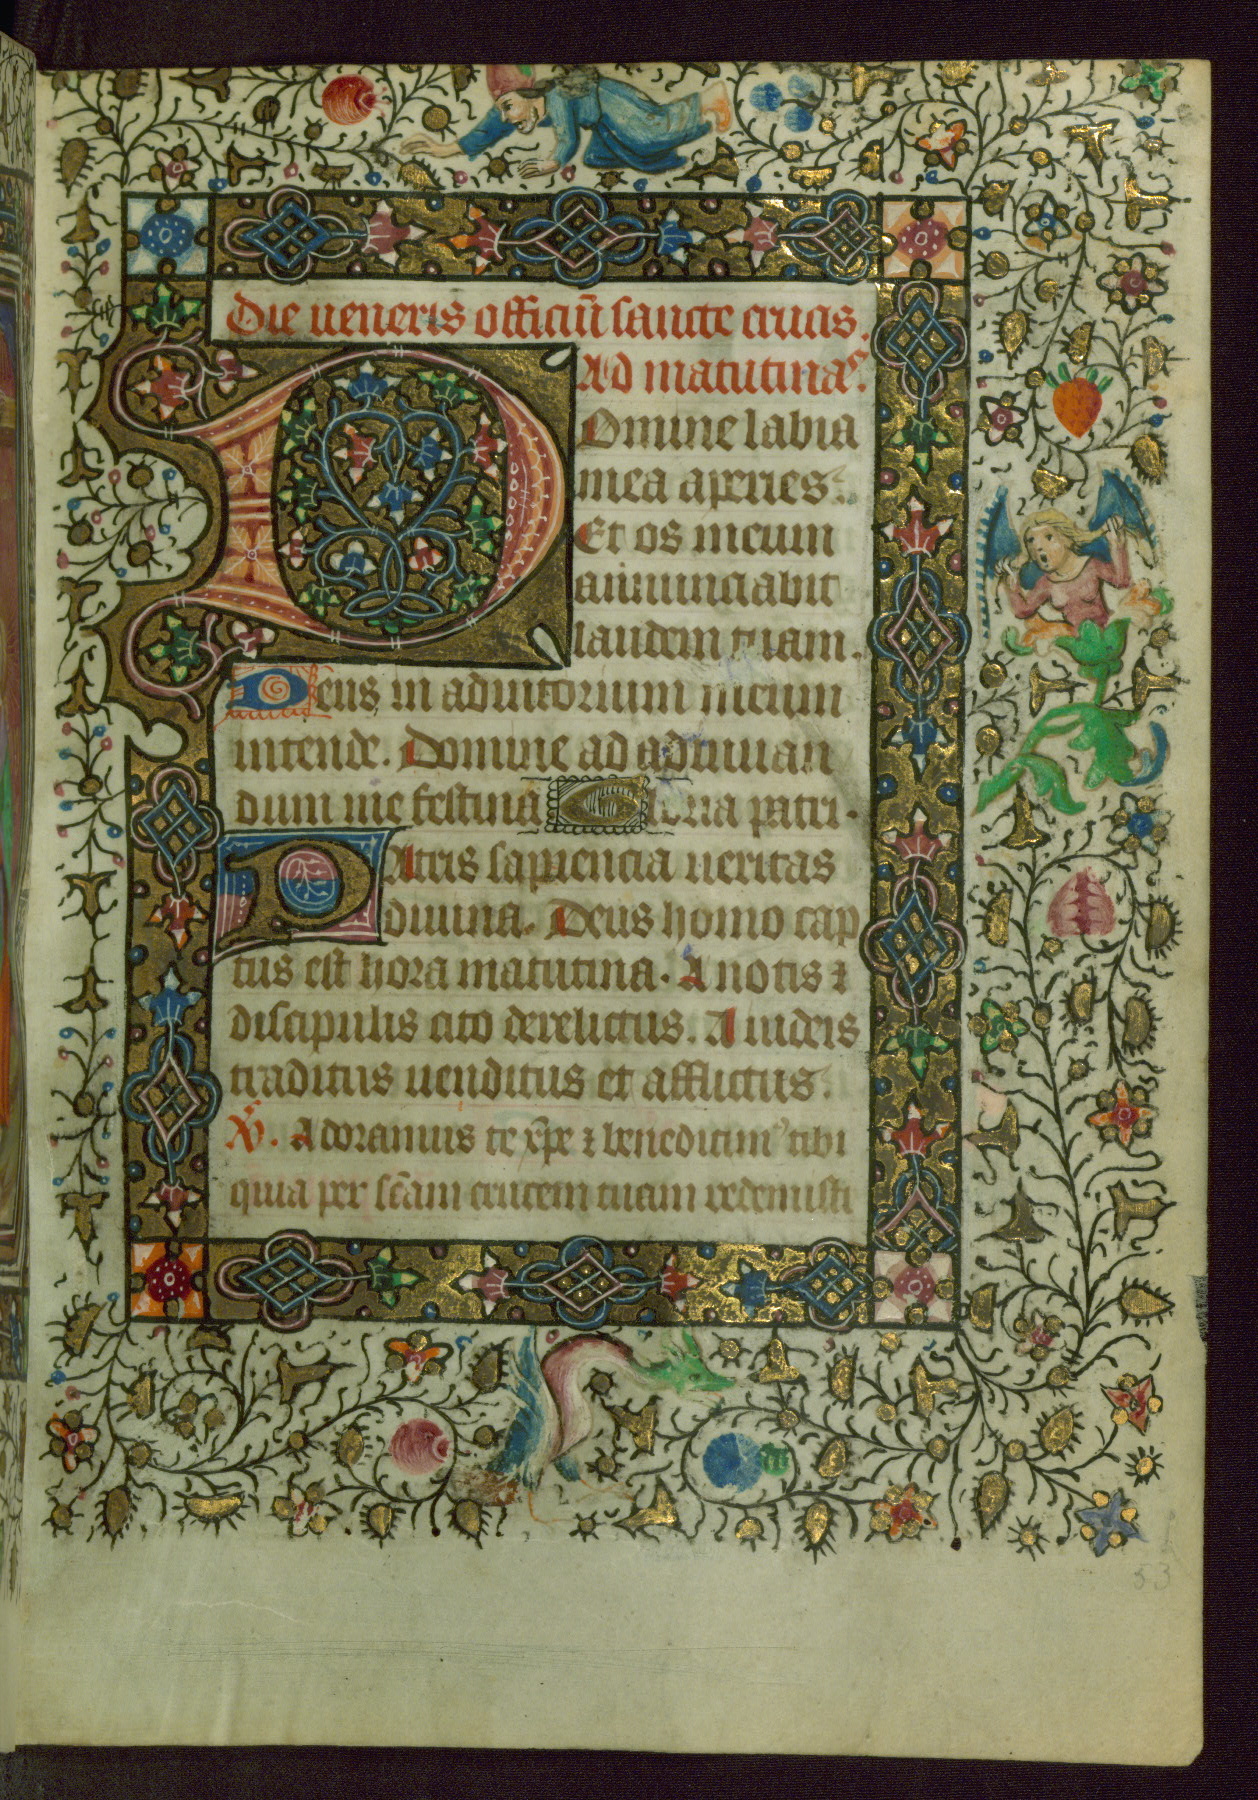 Die ueneris officiū sancte crucis.
Ad matutinaꝝ.
Domine labia
mea aperies.
Et os meum
annunciabit
laudem tuam.
Deus in adiutorium meum
intende. Domine ad adiuuan
dum me festina Gloria patri.
Patris sapiencia ueritas
diuina. Deus homo cap
tus est hora matutina. A notis ⁊
discipulis cito derelictus. A iudeis
traditus uenditus et afflictus.
Adoramus te xp̄e ⁊ benedicimꝰ tibi
quia per sc̄am crucem tuam redemisti
53